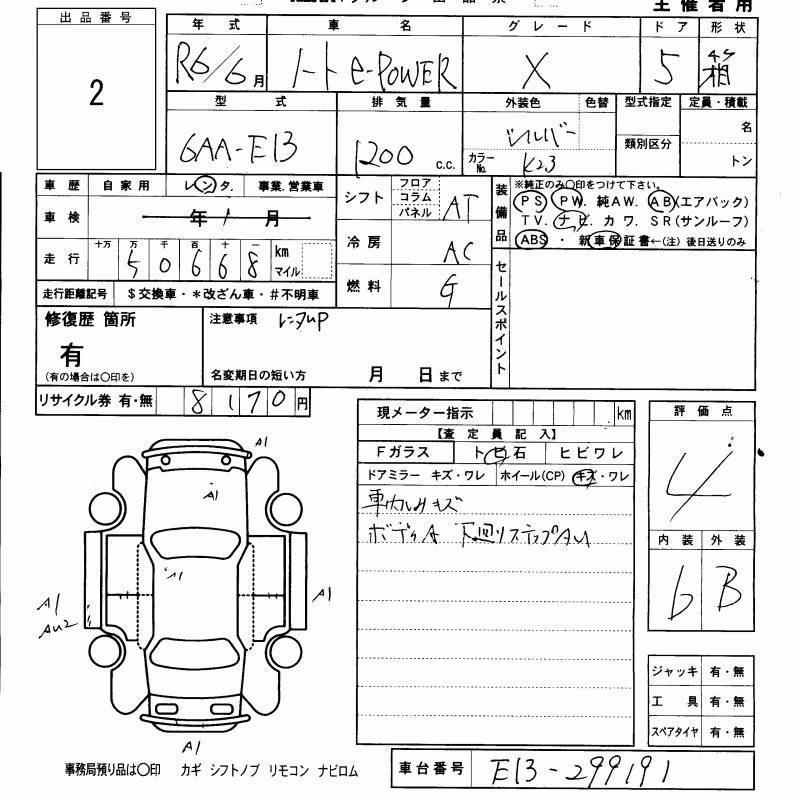 主催者用
出品番号
2
年式 車名 グレード ドア 形状
R6/6月 ノート e-POWER X 5 箱
型式 排気量 外装色 色替 型式指定 定員・積載
6AA-E13 1200 c.c. シルバー 名
カラーNo. K23 類別区分 トン
車歴 自家用 レンタ. 事業.営業車
車検 年 1 月
走行 十万 万 千 百 十 一
5 0 6 6 8 km マイル
走行距離記号 $交換車・*改ざん車・#不明車
シフト フロア コラム パネル AT
冷房 AC
燃料 G
装備品 ※純正のみ〇印をつけて下さい。
PS PW. 純AW. AB(エアバック)
TV. ナビ カワ. SR(サンルーフ)
ABS ・ 新車保証書←(注) 後日送りのみ
セールスポイント
修復歴 箇所
有
(有の場合は〇印を)
注意事項 レンタUP
名変期日の短い方 月 日まで
リサイクル券 有・無 8 1 7 0 円
現メーター指示 km
【査定員記入】
Fガラス トビ石 ヒビワレ
ドアミラー キズ・ワレ ホイール(CP) キズ・ワレ
車内シミキズ
ボディA 下廻りステップAU
評価点
4
内装 外装
6 B
A1
A1
A1
A1
AU2
A1
A1
ジャッキ 有・無
工具 有・無
スペアタイヤ 有・無
事務局預り品は〇印 カギ シフトノブ リモコン ナビロム
車台番号 E13-299191